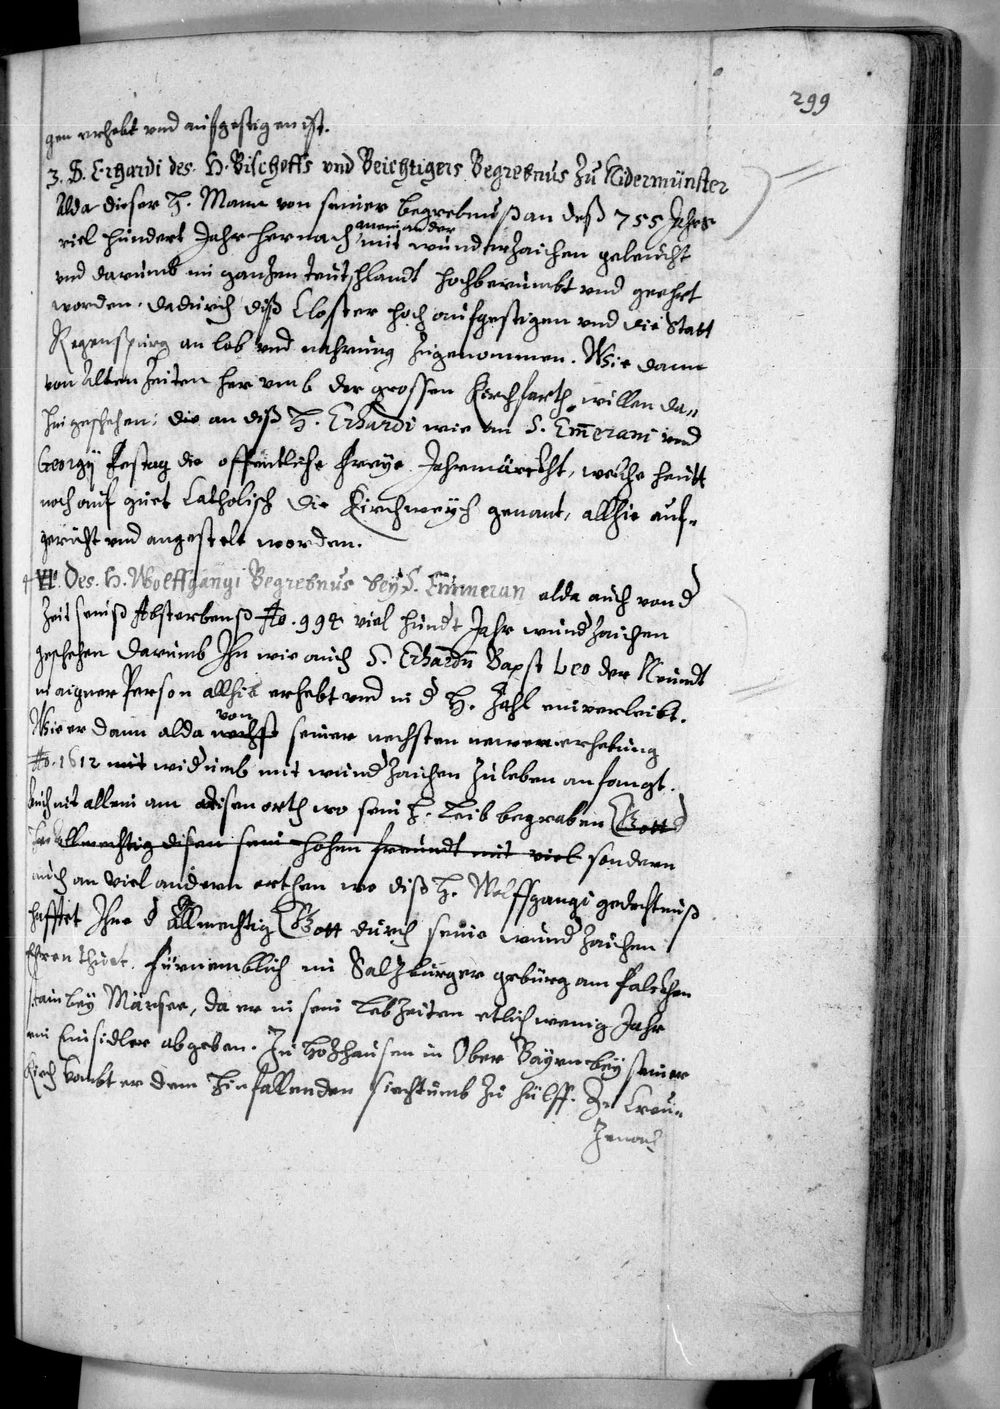 299
gen erhebt vnd aufgestigen ist.
3. S. Erhardi des H. Bischoffs vnd Beichtigers Begrebnus zu Nidermünster
Alda dieser H. Mann von seiner begrebnuß an deß 755 Jahrs
viel hundert Jahr hernach aneinander mit wunderzaichen geleucht
vnd darumb in ganzen Teutschlandt hochberümbt vnd geehrt
worden. dadurch diß Closter hoch aufgestigen vnd die Statt
Regenspurg an lob vnd nahrung zugenommen. Wie dann
von Alten Zeiten her vmb der grossen Kirchfarth willen da-
hin geschehen: die an diß H. Erhardi wie an S. Emerani vnd
Georgÿ Festag die offentliche freÿe Jahrmärckht, welche heutt
noch auf guet Catholisch die Kirchweÿch genant, allhie auf-
gericht vnd angestelt worden.
4 Des H. Wolffgangi Begrebnus beÿ S. Emmeran alda auch von d
Zeit seiniß Absterbenß Ao. 994 viel hundt Jahr wundzaichen
geschehen darumb Ihn wie auch S. Erhardn Bapst Leo der Neundt
in aigner Person allhie erhebt vnd in d H. Zahl einverleibt.
Wie er dann alda nechst von seiner nechsten newen erhebung
Ao. 1612 mit widumb mit wundzaichen zuleben anfangt.
auch nit allein am disen orth wo sein H. Leib begraben (Gott
hat allmechtig disen sein hohen freundt mit viel sondern
auch an viel andern orthen wo diß H. Wolffgangi gedechtnuß
hafftet Ihne d Allmechtig Gott durch seine wundzaichen
Ehren thuet. fürnemblich im Saltzburger gebürg am falchen
stain beÿ Mänsee, da er in sein Lebzeiten etlich wenig Jahr
ein Einsidler abgeben. Zu Holzhausen in Ober Baÿrn beÿ seiner
Kirch kombt er dem hinfallenden siechtumb zu hülff. Zu Creu-
zenach